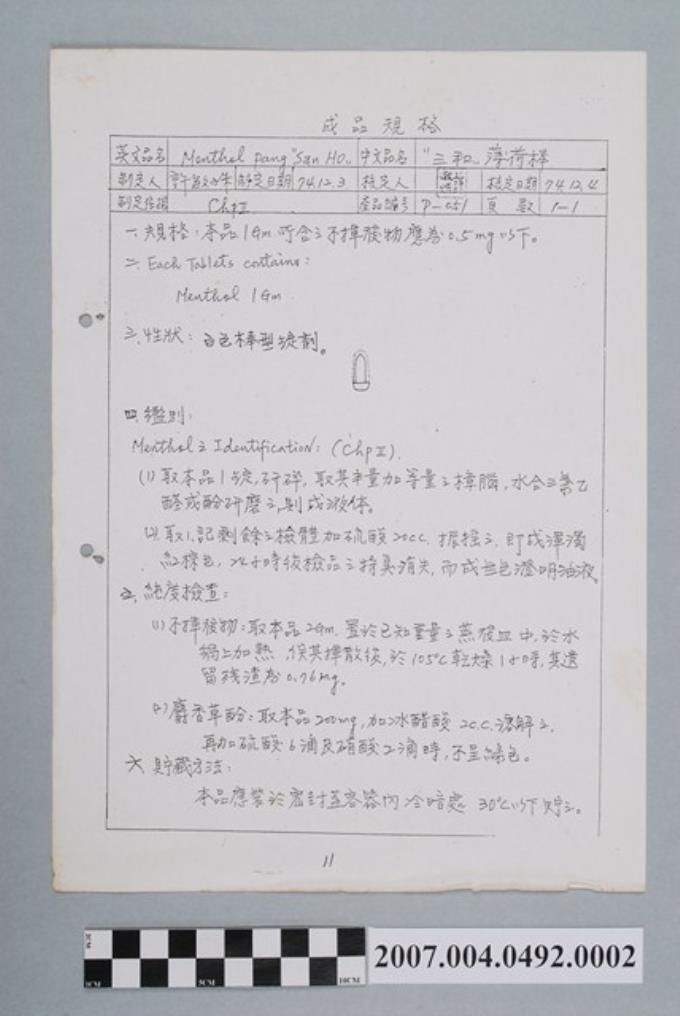 成品規格
英文品名 Menthol Pang "San HO" 中文品名 "三和"薄荷棒
制定人 制定日期 74.12.3 核定人 核定日期 74.12.4
制定依據 ChpII 產品編號 P-051 頁數 1-1
一、規格：本品1Gm所含之不揮發物應為0.5mg以下。
二、Each Tablets contains:
Menthol 1Gm
三、性狀：白色棒型錠劑。
四、鑑別：
Menthol之Identification: (ChpII).
(1)取本品1錠,研碎,取其半量加等量之樟腦,水合三氯乙
醛或酚研磨之,則成液体。
(2)取1.記剩餘之檢體加硫酸20cc.振搖之,即成渾濁
紅棕色,24小時後檢品之特臭消失,而成無色澄明油液。
五、純度檢查：
(1)不揮發物：取本品2Gm.置於已知重量之蒸發皿中,於水
鍋上加熱,俟其揮散後,於105℃乾燥1小時,其遺
留殘渣為0.76mg.
(2)麝香草酚：取本品200mg,加冰醋酸2c.c.溶解之,
再加硫酸6滴及硝酸2滴時,不呈綠色。
六、貯藏方法：
本品應裝於密封蓋容器內冷暗處30℃以下貯之。
11
1CM
5CM
10CM
2007.004.0492.0002